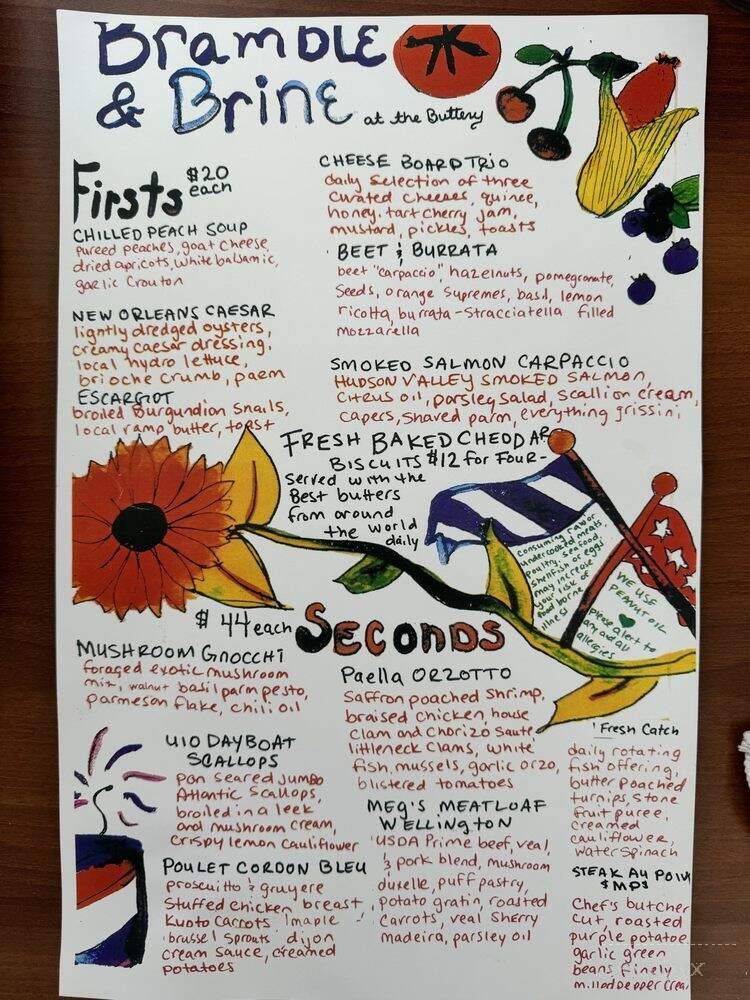 Bramble
& Brine at the Buttery
Firsts $20 each
CHILLED PEACH SOUP
pureed peaches, goat cheese,
dried apricots, white balsamic,
garlic crouton
NEW ORLEANS CAESAR
lightly dredged oysters,
creamy caesar dressing,
local hydro lettuce,
brioche crumb, parm
ESCARGOT
broiled Burgundian snails,
local ramp butter, toast
CHEESE BOARD TRIO
daily selection of three
curated cheeses, quince,
honey, tart cherry jam,
mustard, pickles, toasts
BEET & BURRATA
beet "carpaccio", hazelnuts, pomegranate
seeds, orange supremes, basil, lemon
ricotta, burrata-Stracciatella filled
mozzarella
SMOKED SALMON CARPACCIO
HUDSON VALLEY SMOKED SALMON,
citrus oil, parsley salad, scallion cream,
capers, shaved parm, everything grissini
FRESH BAKED CHEDDAR
BISCUITS $12 for FOUR-
served with the
Best butters
from around
the world
daily
consuming raw or
undercooked meats,
poultry, seafood,
shellfish or eggs
may increase
your risk of
food borne
illness!
WE USE
PEANUT OIL
please alert to
any and all
allergies
$44 each SECONDS
MUSHROOM GNOCCHI
foraged exotic mushroom
mix, walnut basil parm pesto,
parmesan flake, chili oil
U10 DAYBOAT
SCALLOPS
pan seared jumbo
Atlantic scallops,
broiled in a leek
and mushroom cream,
crispy lemon cauliflower
POULET CORDON BLEU
proscuitto & gruyere
stuffed chicken breast,
Kyoto carrots, maple
brussel sprouts, dijon
cream sauce, creamed
potatoes
Paella ORZOTTO
Saffron poached shrimp,
braised chicken, house
clam and chorizo saute,
littleneck clams, white
fish, mussels, garlic orzo,
blistered tomatoes
MEG'S MEATLOAF
WELLINGTON
USDA Prime beef, veal,
& pork blend, mushroom
duxelle, puff pastry,
potato gratin, roasted
carrots, veal sherry
madeira, parsley oil
Fresh Catch
daily rotating
fish offering,
butter poached
turnips, stone
fruit puree,
creamed
cauliflower,
water spinach
STEAK AU POIV
$MP$
Chef's butcher
cut, roasted
purple potatoe
garlic green
beans, finely
milled pepper crea